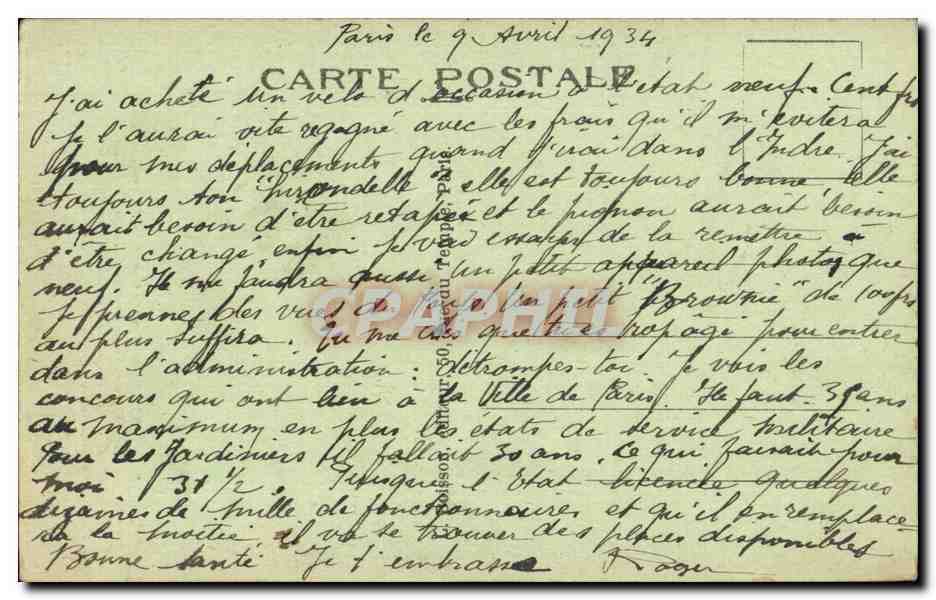 Paris le 9 Avril 1934
CARTE POSTALE
J'ai acheté un velo d'occasion à l'état neuf. Cent frs
Je l'aurai vite regagné avec les frais qu'il m'evitera
pour mes déplacements quand j'irai dans l'Indre. J'ai
toujours ton "hirondelle" elle est toujours bonne, elle
aurait besoin d'être retapée et le pignon aurait besoin
d'être changé, enfin je vais essayer de la remettre à
neuf. Il me faudra aussi un petit appareil photo, que
je prenne des vues du Un petit "Brownie" de 100frs
au plus suffira. Tu me dis que trop âgé pour entrer
dans l'administration : détrompes-toi. Je vois les
concours qui ont lieu à la Ville de Paris. Il faut 35 ans
au maximum en plus les états de service militaire
Pour les Jardiniers il fallait 30 ans, ce qui faisait pour
moi 31 1/2. Puisque l'Etat licencie quelques
dizaines de mille de fonctionnaires et qu'il en remplace
la moitié, il va se trouver des places disponibles
Bonne santé Je t'embrasse Roger
Editeur, 50, Rue du Temple, Paris
CPAPHIL